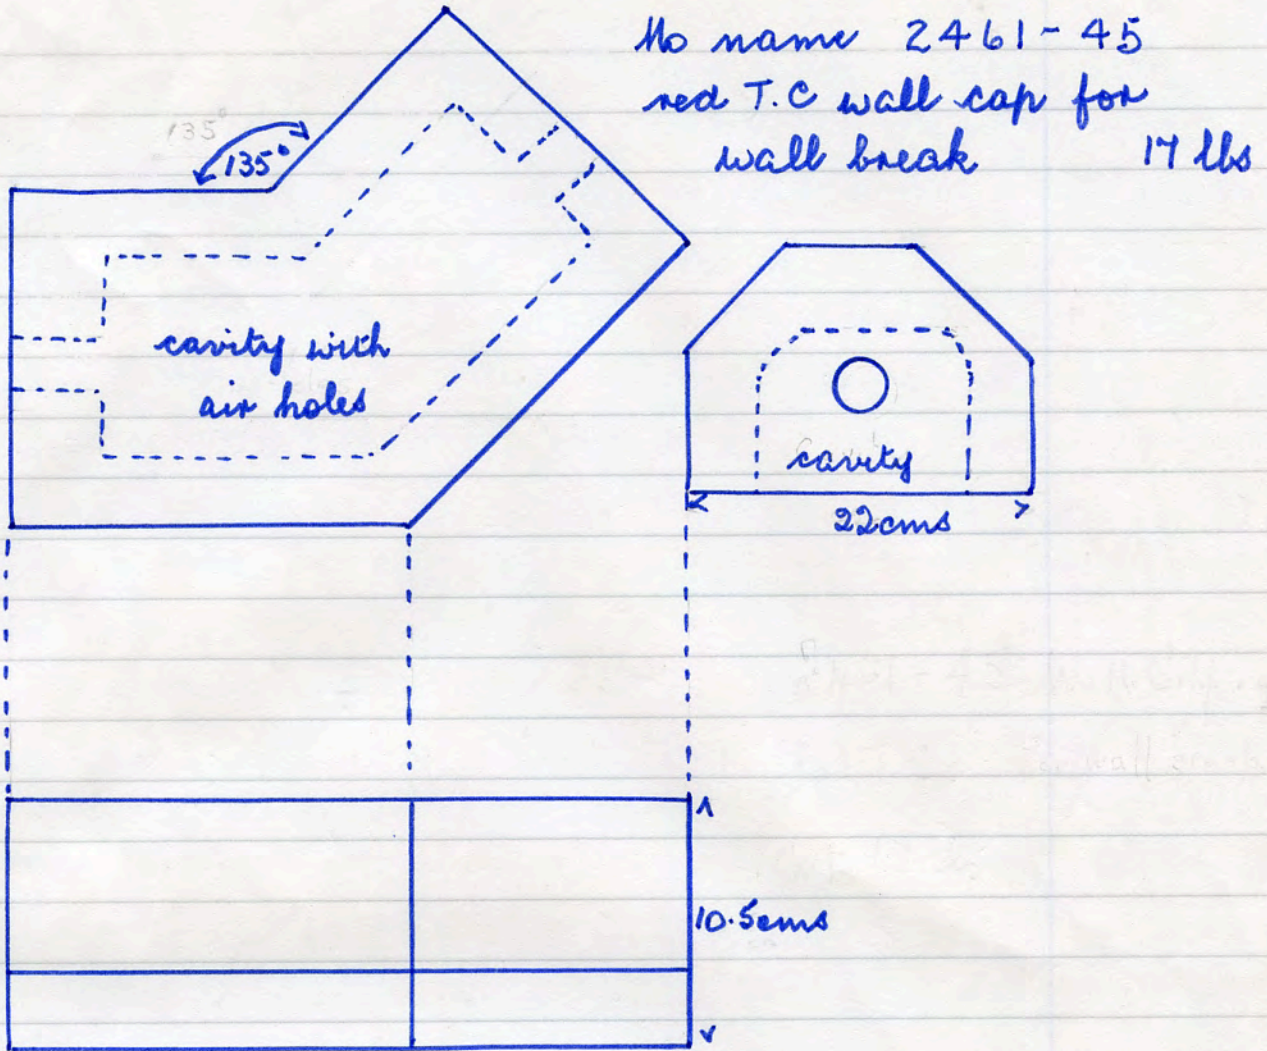 No name 2461-45
red T.C wall cap for
wall break 17 lbs
135°
135°
cavity with
air holes
cavity
22cms
10.5cms